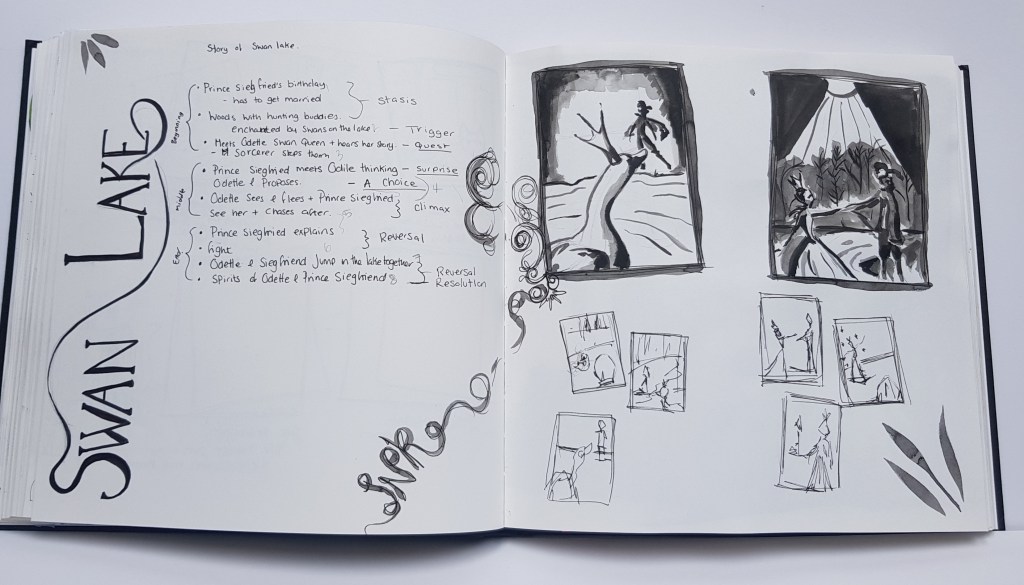 SWAN LAKE
Story of Swan lake.
Beginning
• Prince Siegfried's birthday.
- has to get married
Stasis
• Woods with hunting buddies.
enchanted by swans on the lake.
- Trigger
• Meets Odette Swan Queen + hears her story - Quest
- Sorcerer stops them 3
Middle
• Prince Siegfried meets Odile thinking - Surprise
Odette & Proposes. - A Choice
+
• Odette Sees & flees + Prince Siegfried
See her + chases after.
Climax
End
• Prince Siegfried explains
Reversal
• fight
6
• Odette & Siegfriend Jump in the lake together
• Spirits of Odette & Prince Siegfriend 8
Reversal
Resolution